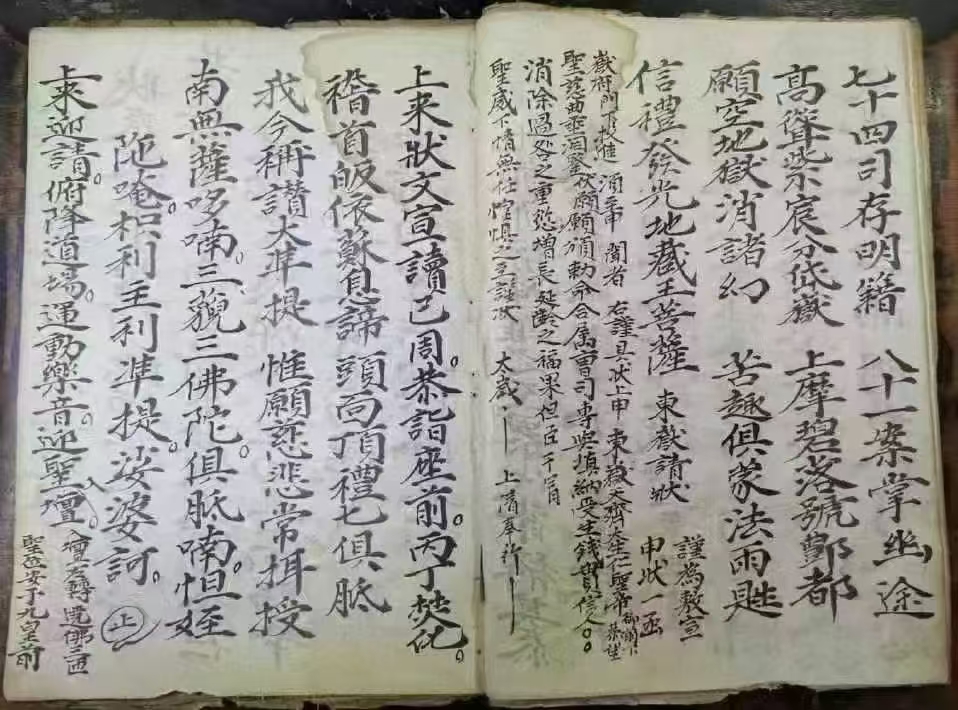 七十四司存明籍　八十一案掌幽途
高聳紫宸分岱嶽　上摩碧落號酆都
願空地獄消諸幻　苦趣俱蒙法雨甦
信禮發光地藏王菩薩　東嶽請狀　謹為敷宣　申狀一函
嶽府門下投進　須至申　聞者　右謹具狀上申　東嶽天齊大生仁聖帝　御前　恭望
聖慈曲垂洞鑒伏願願頒勅命合属曹司專與填納受生錢貫信人○○
消除過咎之重愆增長延齡之福果但臣干冒
聖威下情無任惶懼之至謹狀　太歲　上清奉行
上来狀文宣讀已周。恭詣座前。丙丁焚化。
稽首皈依蘇悉諦　頭面頂禮七俱胝
我今稱讃大準提　惟願慈悲常拑授
南無薩哆喃。三藐三佛陀。俱胝喃。怛姪
陀。唵。枳利主利準提。娑婆訶。上
上来迎請。俯降道場。運動樂音。迎聖壇。
八壇左轉遶佛三匝
聖位安于九皇前